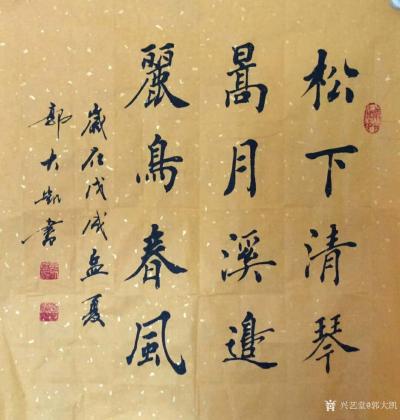 松下清琴
暠月溪邉
麗鳥春風
歲在戊戌孟夏
郭大凱書
兴艺堂@郭大凯